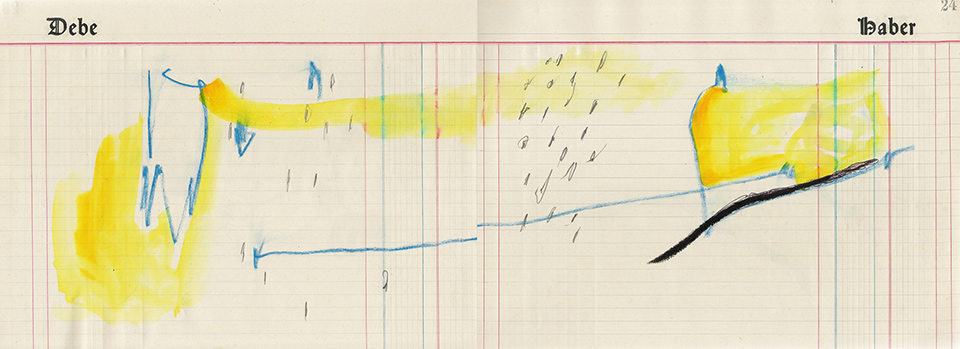 Debe Haber
24